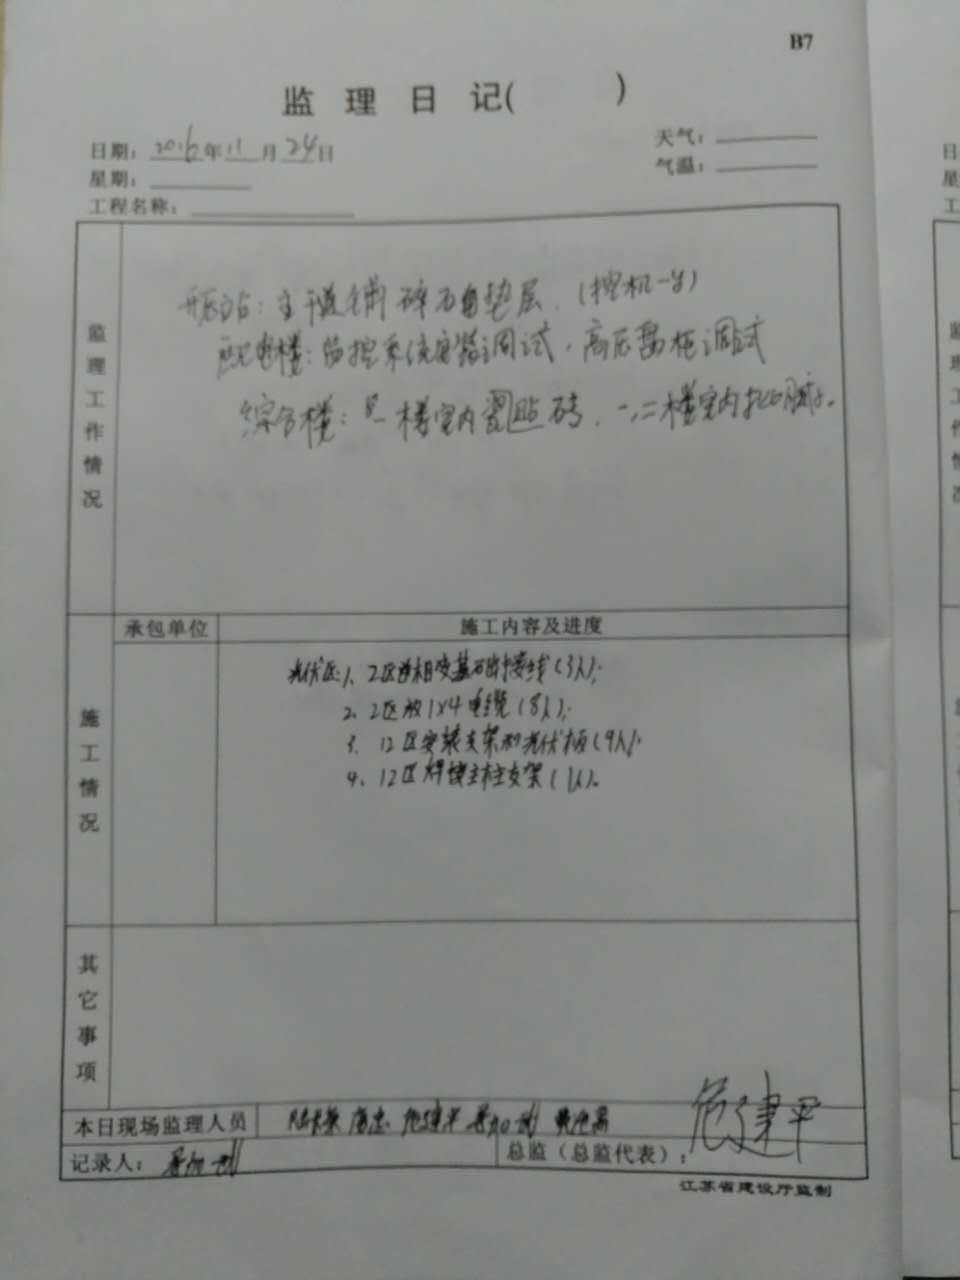 B7
监 理 日 记( )
日期: 2016年11月24日
天气:
星期:
气温:
工程名称:
监理工作情况
主干道铺碎石自垫层.(挖机一台)
配电楼:监控系统安装调试.高压柜调试
综合楼:一楼室内 贴砖.一,二楼室内
施工情况
承包单位
施工内容及进度
光伏区:1、2区 接线(3人);
2、2区放1×4电缆(8人);
3、12区安装支架和光伏板(9人);
4、12区焊接主柱支架(1人)。
其它事项
本日现场监理人员 危建平
记录人:
总监(总监代表): 危建平
江苏省建设厅监制
日
星
工